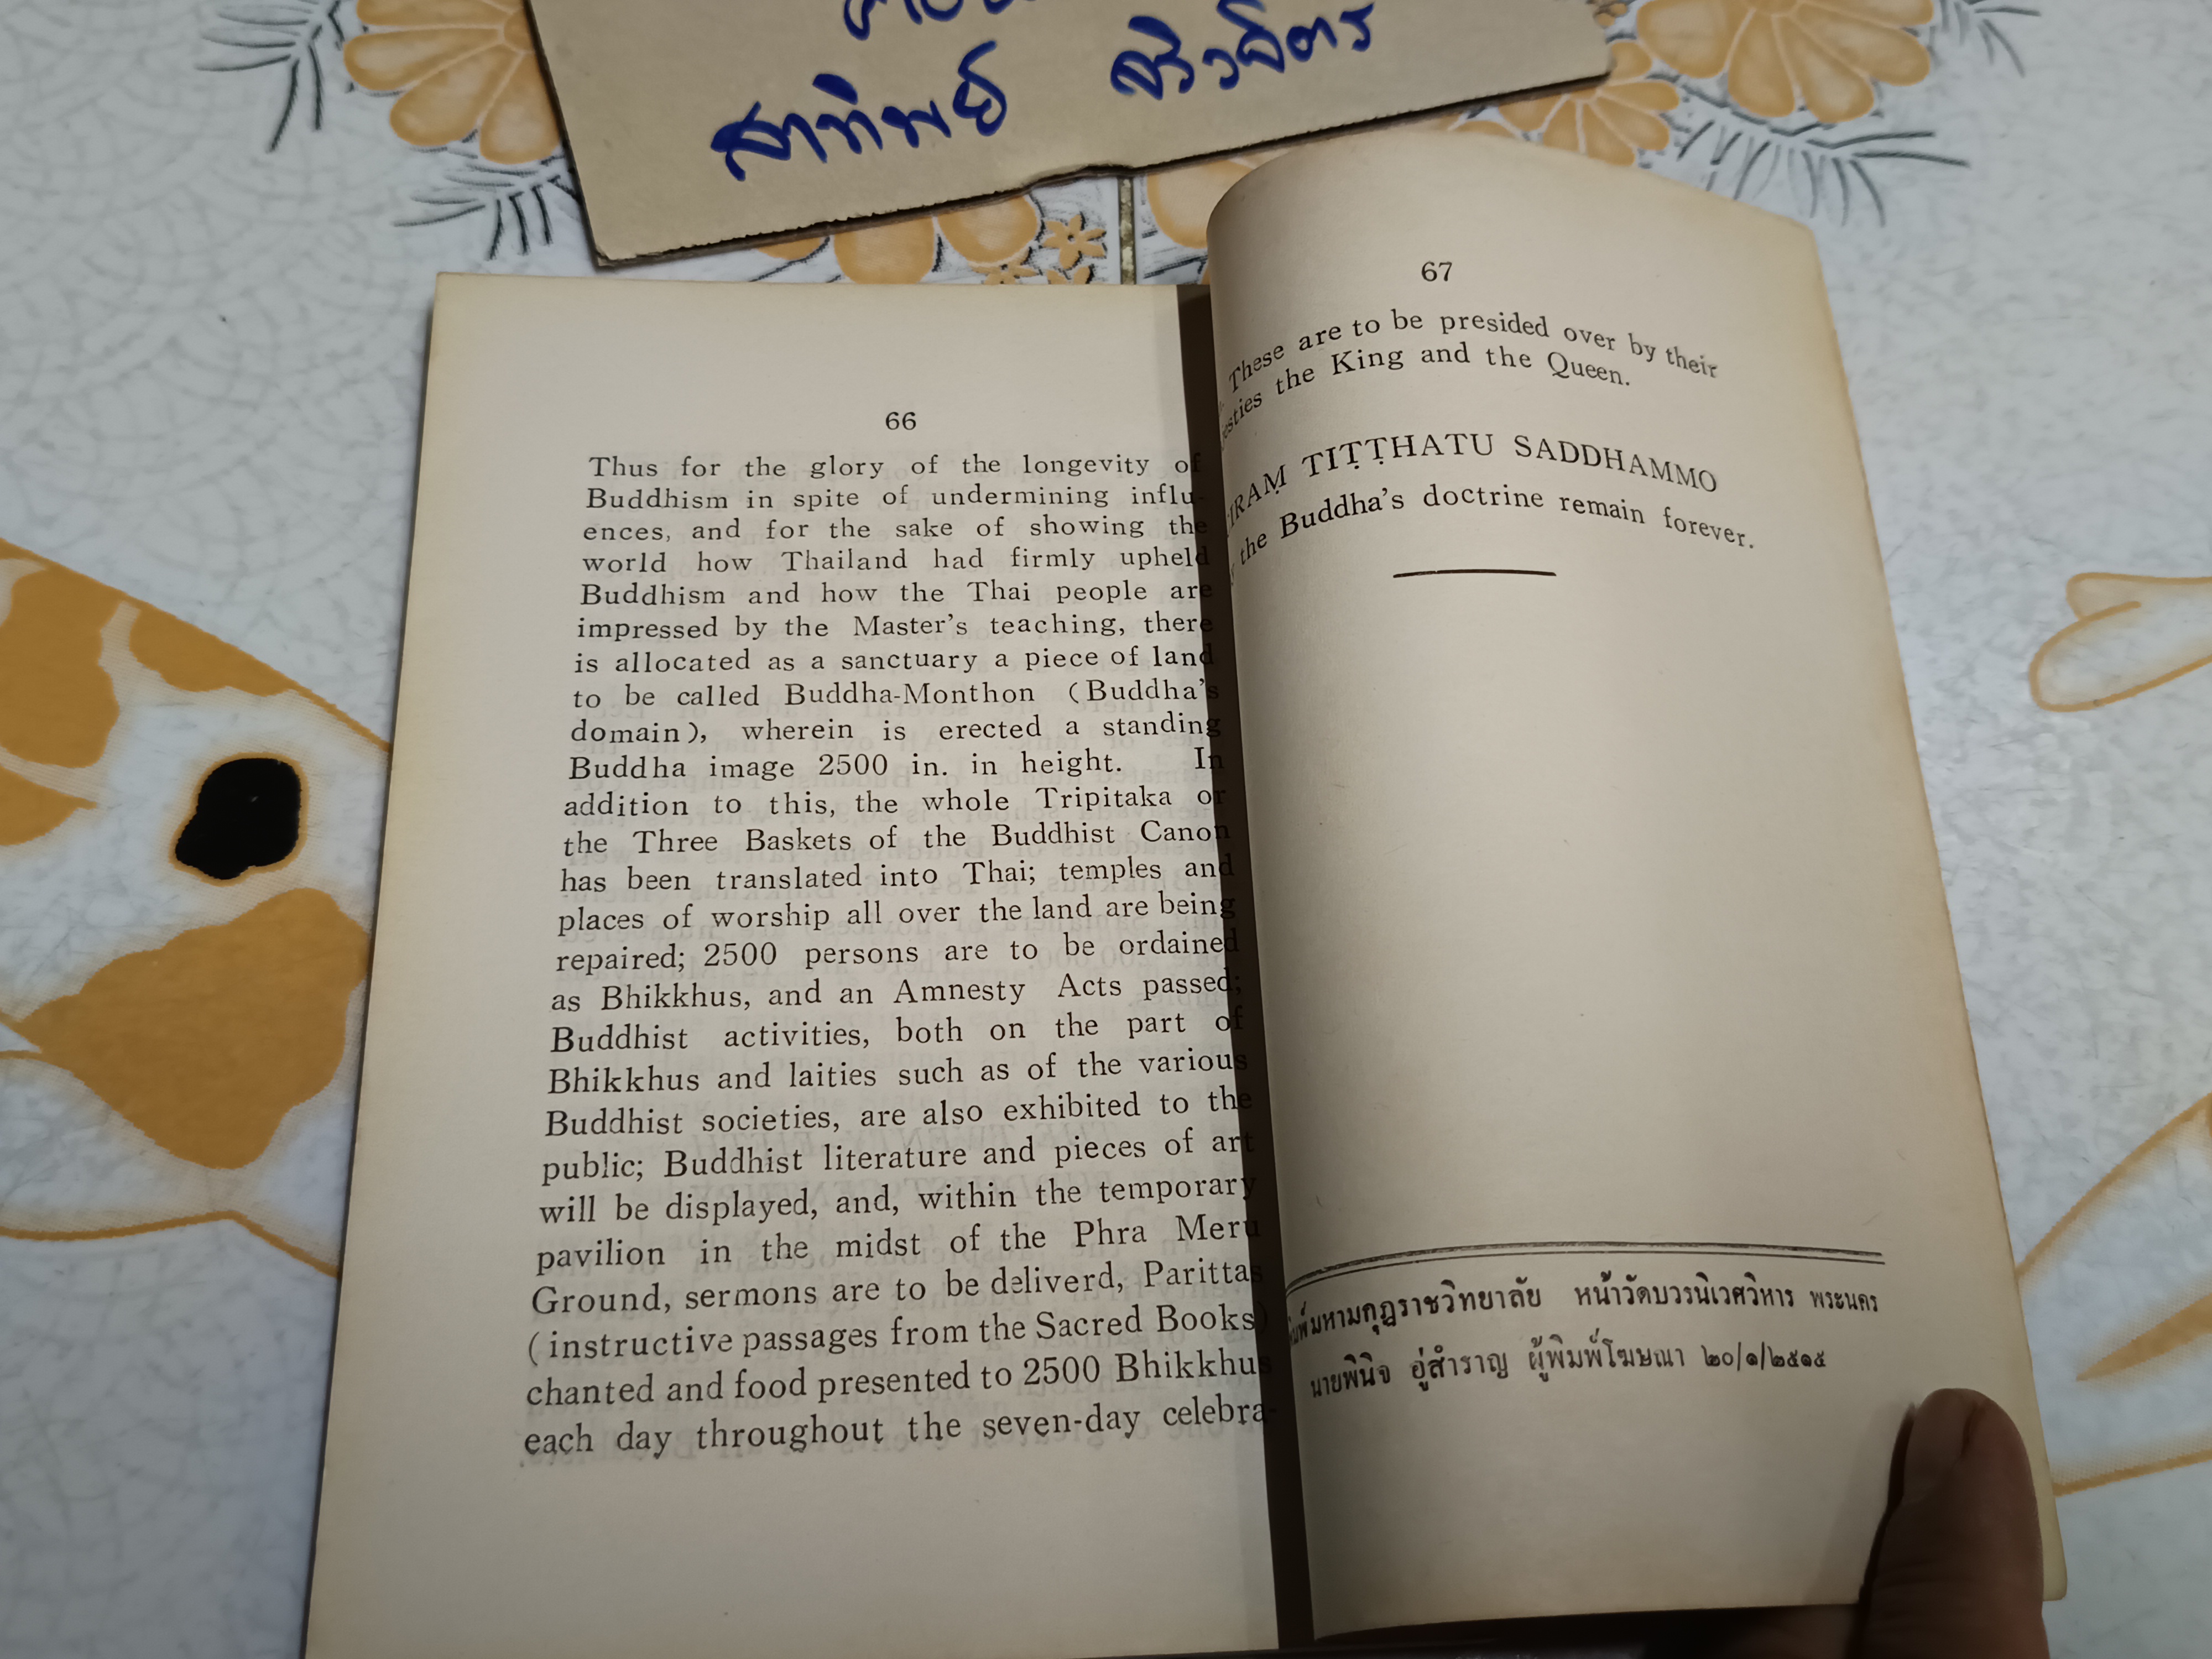 สาทิพย์
66
Thus for the glory of the longevity of
Buddhism in spite of undermining influ-
ences, and for the sake of showing the
world how Thailand had firmly upheld
Buddhism and how the Thai people are
impressed by the Master's teaching, there
is allocated as a sanctuary a piece of land
to be called Buddha-Monthon (Buddha's
domain), wherein is erected a standing
Buddha image 2500 in. in height. In
addition to this, the whole Tripitaka or
the Three Baskets of the Buddhist Canon
has been translated into Thai; temples and
places of worship all over the land are being
repaired; 2500 persons are to be ordained
as Bhikkhus, and an Amnesty Acts passed;
Buddhist activities, both on the part of
Bhikkhus and laities such as of the various
Buddhist societies, are also exhibited to the
public; Buddhist literature and pieces of art
will be displayed, and, within the temporary
pavilion in the midst of the Phra Meru
Ground, sermons are to be deliverd, Parittas
(instructive passages from the Sacred Books)
chanted and food presented to 2500 Bhikkhus
each day throughout the seven-day celebra-
67
These are to be presided over by their
the King and the Queen.
TIṬṬHATU SADDHAMMO
the Buddha's doctrine remain forever.
มหามกุฏราชวิทยาลัย หน้าวัดบวรนิเวศวิหาร พระนคร
นายพินิจ อู่สำราญ ผู้พิมพ์โฆษณา ๒๐/๑/๒๕๑๕